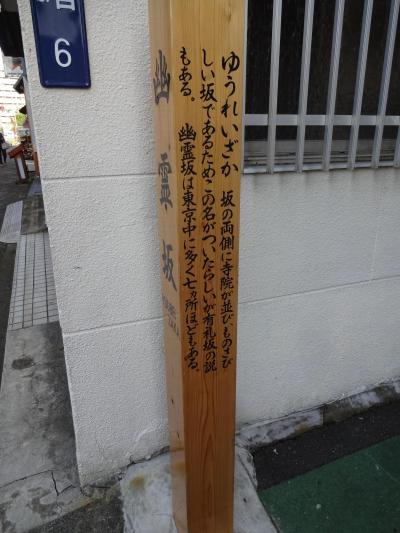 ゆうれいざか 坂の両側に寺院が並び、ものさび
しい坂であるためこの名がついたらしいが有礼坂の説
もある。 幽霊坂は東京中に多く七ヵ所ほどもある。
幽霊坂
6